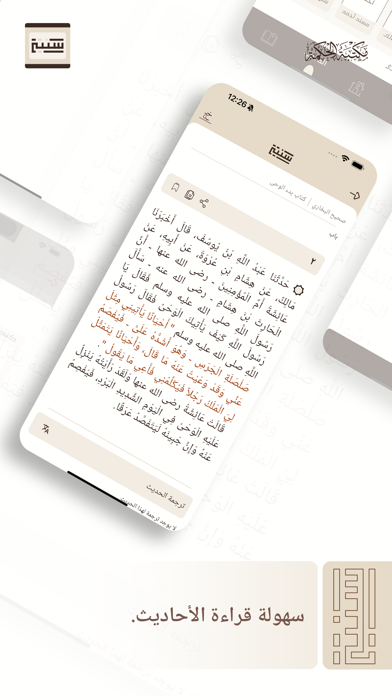 سُنّة
مكتبة الحكمة
12:26
سُنّة
صحيح البخاري | كتاب بدء الوحى
باب
٢
حَدَّثَنَا عَبْدُ اللَّهِ بْنُ يُوسُفَ، قَالَ أَخْبَرَنَا
مَالِكٌ، عَنْ هِشَامِ بْنِ عُرْوَةَ، عَنْ أَبِيهِ، عَنْ
عَائِشَةَ أُمِّ الْمُؤْمِنِينَ ـ رضى الله عنها ـ أَنَّ
الْحَارِثَ بْنَ هِشَامٍ ـ رضى الله عنه ـ سَأَلَ
رَسُولَ اللَّهِ صلى الله عليه وسلم فَقَالَ يَا
رَسُولَ اللَّهِ كَيْفَ يَأْتِيكَ الْوَحْىُ فَقَالَ رَسُولُ
اللَّهِ صلى الله عليه وسلم " أَحْيَانًا يَأْتِينِي مِثْلَ
صَلْصَلَةِ الْجَرَسِ ـ وَهُوَ أَشَدُّهُ عَلَىَّ ـ فَيُفْصَمُ
عَنِّي وَقَدْ وَعَيْتُ عَنْهُ مَا قَالَ، وَأَحْيَانًا يَتَمَثَّلُ
لِيَ الْمَلَكُ رَجُلاً فَيُكَلِّمُنِي فَأَعِي مَا يَقُولُ ".
قَالَتْ عَائِشَةُ رضى الله عنها وَلَقَدْ رَأَيْتُهُ يَنْزِلُ
عَلَيْهِ الْوَحْىُ فِي الْيَوْمِ الشَّدِيدِ الْبَرْدِ، فَيَفْصِمُ
عَنْهُ وَإِنَّ جَبِينَهُ لَيَتَفَصَّدُ عَرَقًا.
ترجمة الحديث
لا يوجد ترجمة لهذا الحديث
سهولة قراءة الأحاديث.